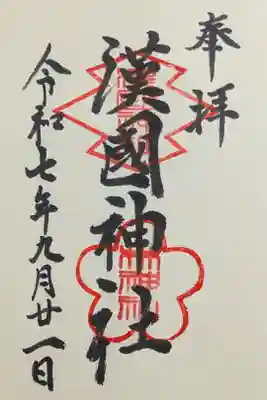 奉拝
漢國神社
令和七年九月廿一日